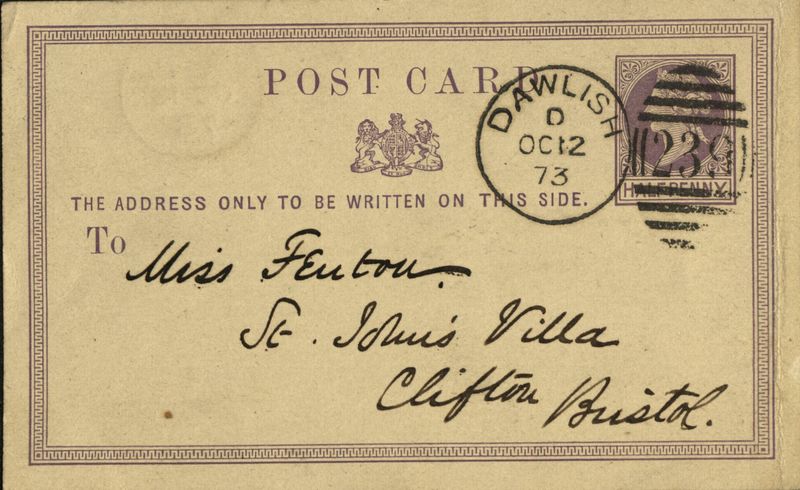 POST CARD
DAWLISH
D
OC12
73
239
HALFPENNY
THE ADDRESS ONLY TO BE WRITTEN ON THIS SIDE.
To
Miss Fenton.
St. John's Villa
Clifton Bristol.